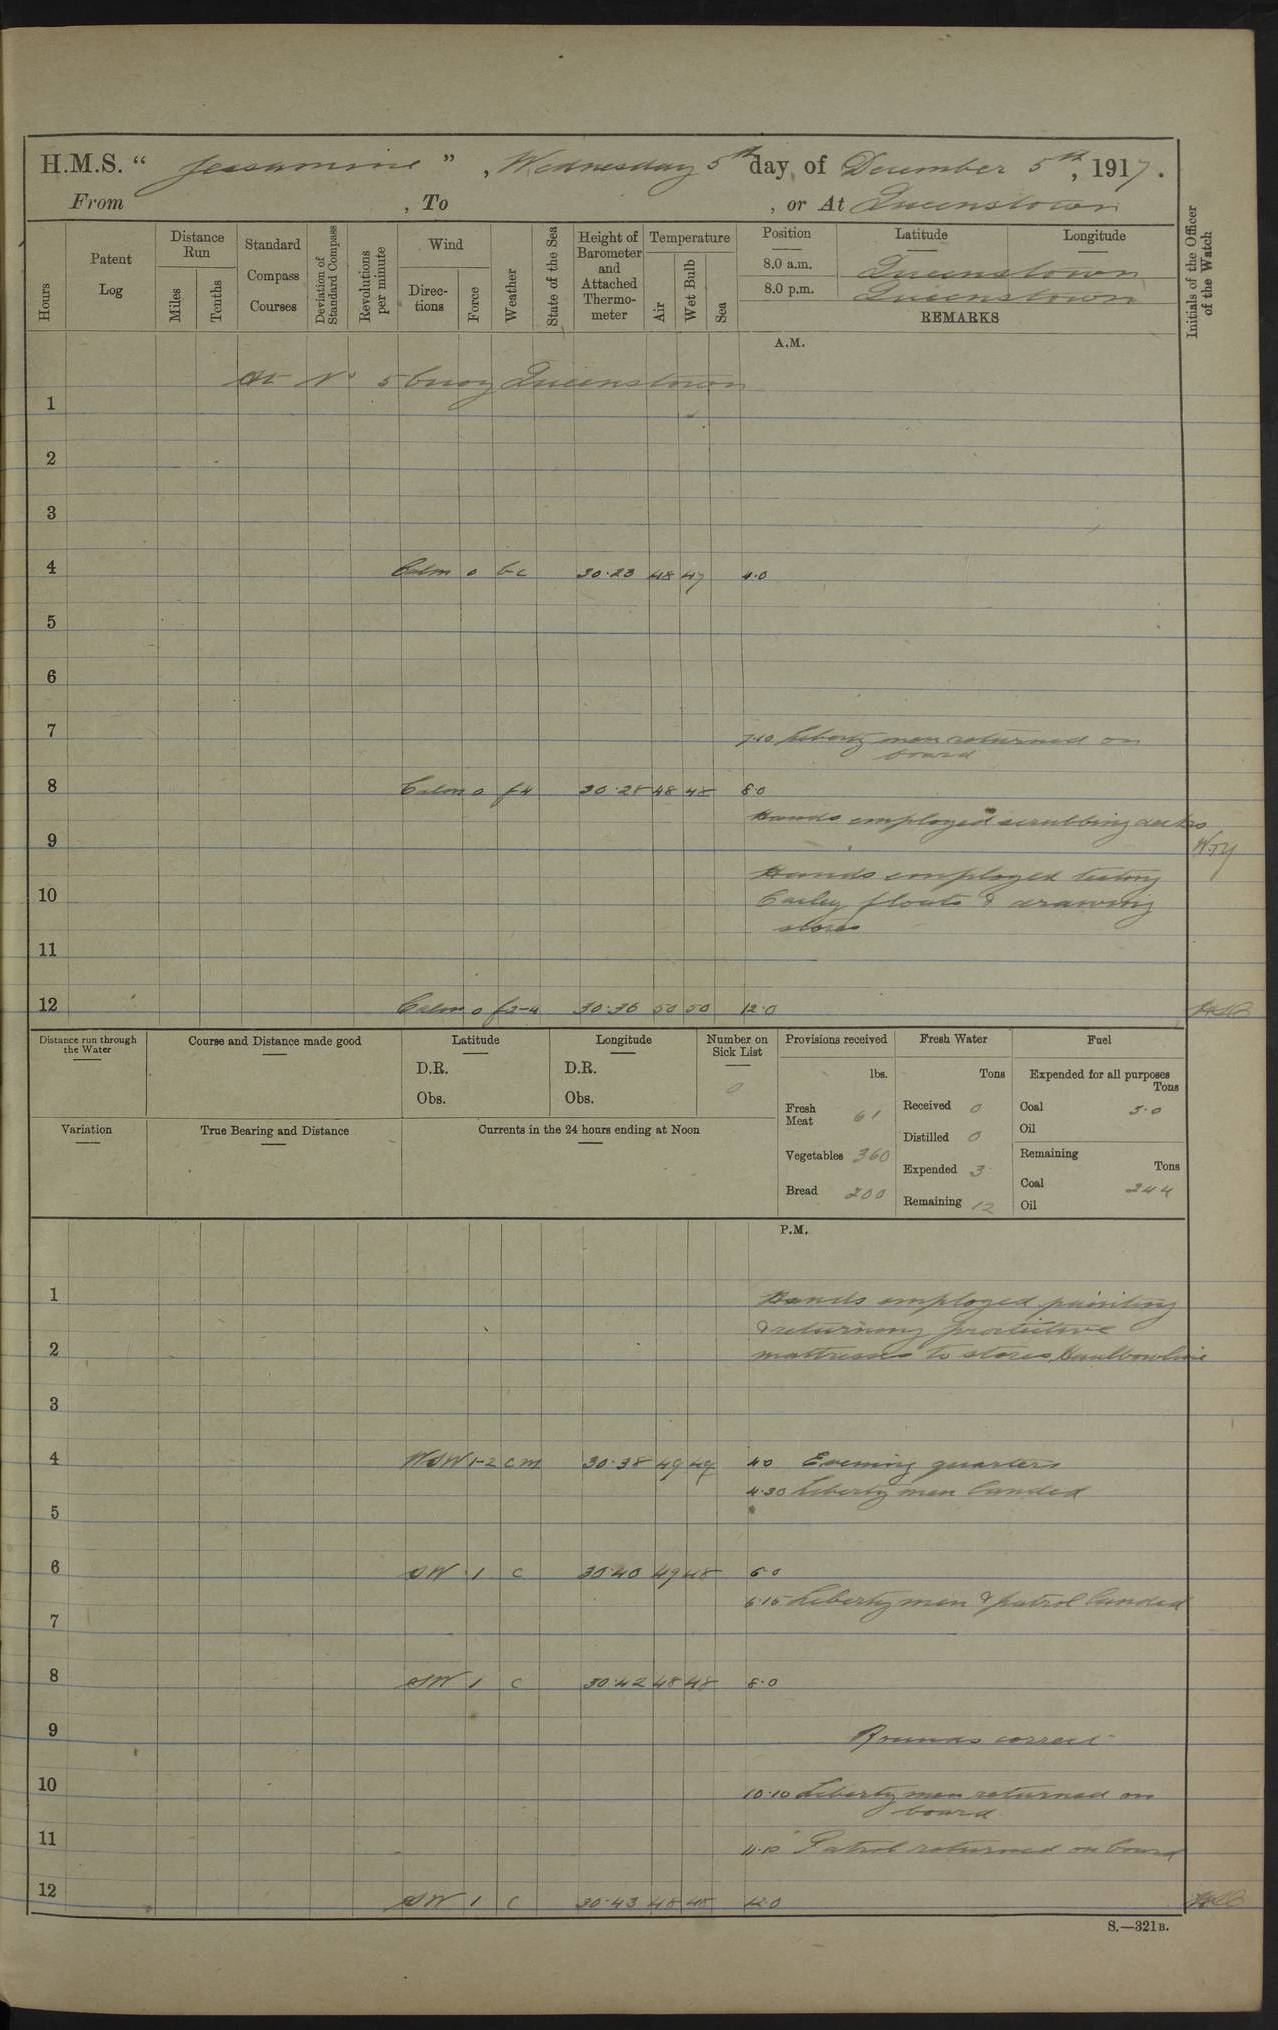 H.M.S. “ Jessamine ” , Wednesday 5th day of December 5th, 1917.
From , To , or At Queenstown
Hours
Patent Log
Distance Run
Miles
Tenths
Standard Compass Courses
Deviation of Standard Compass
Revolutions per minute
Wind
Directions
Force
Weather
State of the Sea
Height of Barometer and Attached Thermometer
Temperature
Air
Wet Bulb
Sea
Position Latitude Longitude
8.0 a.m. Queenstown
8.0 p.m. Queenstown
REMARKS
Initials of the Officer of the Watch
A.M.
At No 5 buoy Queenstown
1
2
3
4 Calm 0 bc 30.23 48 47 4.0
5
6
7
7.10 Liberty men returned on
board
8 Calm 0 f4 30.28 48 48 8.0
Hands employed scrubbing decks
9
Hands employed testing
10 Carley floats & drawing
stores
11
12 Calm 0 f3-4 30.36 50 50 12.0
Distance run through the Water
Course and Distance made good
Latitude
D.R.
Obs.
Longitude
D.R.
Obs.
Number on Sick List
0
Provisions received
lbs.
Fresh Meat 61
Vegetables 360
Bread 200
Fresh Water
Tons
Received 0
Distilled 0
Expended 3
Remaining 12
Fuel
Expended for all purposes
Tons
Coal 5.0
Oil
Remaining
Tons
Coal 244
Oil
Variation
True Bearing and Distance
Currents in the 24 hours ending at Noon
P.M.
1 Hands employed painting
& returning protective
2 mattresses to stores Haulbowline
3
4 WSW 1-2 cm 30.38 49 49 4.0 Evening quarters
4.30 Liberty men landed
5
6 SW 1 c 30.40 49 48 6.0
6.15 Liberty men & patrol landed
7
8 SW 1 c 30.42 48 48 8.0
9 Rounds correct
10 10.10 Liberty men returned on
board
11 11.10 Patrol returned on board
12 SW 1 c 30.43 48 48 12.0
S.—321B.